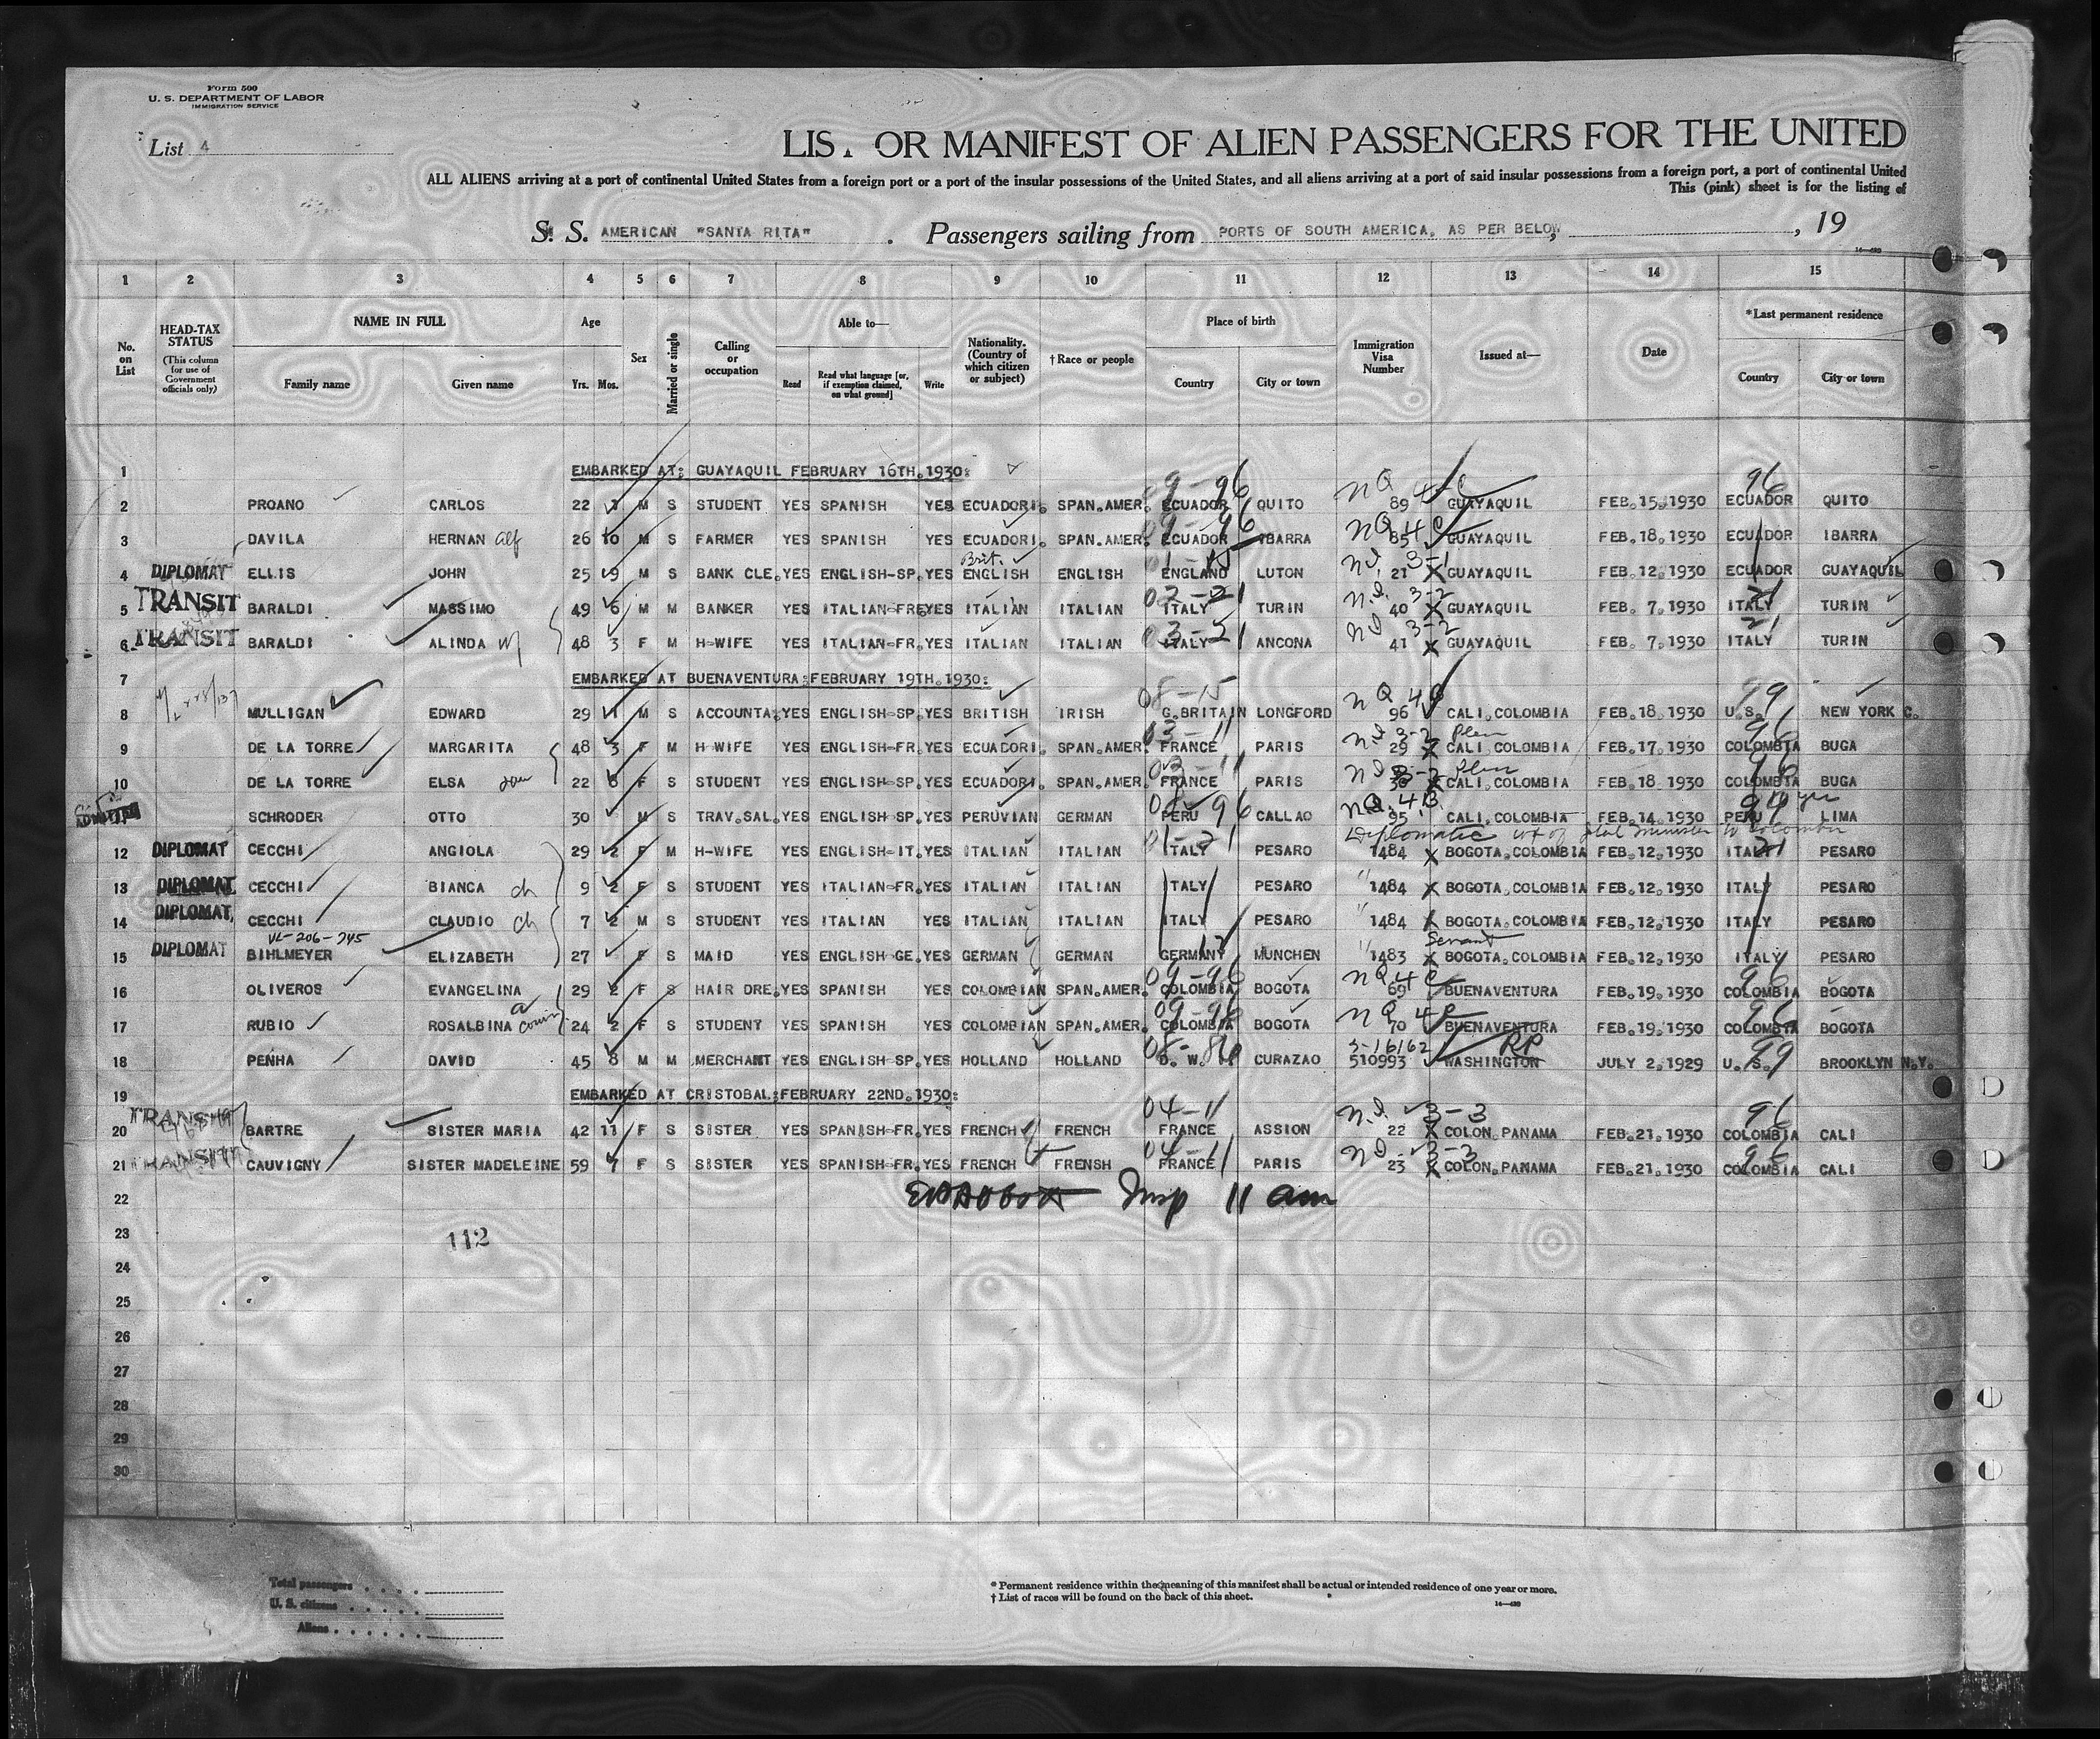 Form 500
U. S. DEPARTMENT OF LABOR
IMMIGRATION SERVICE
List 4
LIS. OR MANIFEST OF ALIEN PASSENGERS FOR THE UNITED
ALL ALIENS arriving at a port of continental United States from a foreign port or a port of the insular possessions of the United States, and all aliens arriving at a port of said insular possessions from a foreign port, a port of continental United
This (pink) sheet is for the listing of
S. S. AMERICAN "SANTA RITA" . Passengers sailing from PORTS OF SOUTH AMERICA, AS PER BELOW, , 19
14—430
1 2 3 4 5 6 7 8 9 10 11 12 13 14 15
No. on List
HEAD-TAX STATUS
(This column for use of Government officials only)
NAME IN FULL
Family name Given name
Age
Yrs. Mos.
Sex
Married or single
Calling or occupation
Able to—
Read Read what language [or, if exemption claimed, on what ground] Write
Nationality. (Country of which citizen or subject)
† Race or people
Place of birth
Country City or town
Immigration Visa Number
Issued at—
Date
*Last permanent residence
Country City or town
1 EMBARKED AT: GUAYAQUIL FEBRUARY 16TH.1930:
09-96 NQ 4-C 96
2 PROANO CARLOS 22 M S STUDENT YES SPANISH YES ECUADORI. SPAN.AMER. ECUADOR QUITO 89 GUAYAQUIL FEB.15.1930 ECUADOR QUITO
09-96 NQ 4C
3 DAVILA HERNAN 26 10 M S FARMER YES SPANISH YES ECUADORI. SPAN.AMER. ECUADOR IBARRA 85 GUAYAQUIL FEB.18.1930 ECUADOR IBARRA
Brit. 01-15 3-1
4 DIPLOMAT ELLIS JOHN 25 9 M S BANK CLE. YES ENGLISH-SP. YES ENGLISH ENGLISH ENGLAND LUTON 21 GUAYAQUIL FEB.12.1930 ECUADOR GUAYAQUIL
02-21 3-2 21
5 TRANSIT BARALDI MASSIMO 49 6 M M BANKER YES ITALIAN-FRE YES ITALIAN ITALIAN ITALY TURIN 40 X GUAYAQUIL FEB. 7.1930 ITALY TURIN
03-21 3-2 21
6 TRANSIT BARALDI ALINDA wf 48 3 F M H-WIFE YES ITALIAN-FR. YES ITALIAN ITALIAN ITALY ANCONA 41 X GUAYAQUIL FEB. 7.1930 ITALY TURIN
7 EMBARKED AT BUENAVENTURA:FEBRUARY 19TH.1930:
08-15 NQ 99
8 MULLIGAN EDWARD 29 M S ACCOUNTA. YES ENGLISH-SP. YES BRITISH IRISH G.BRITAIN LONGFORD 96 CALI.COLOMBIA FEB.18.1930 U.S. NEW YORK C.
03-11 3-2 96
9 DE LA TORRE MARGARITA 48 3 F M H WIFE YES ENGLISH-FR. YES ECUADORI. SPAN.AMER. FRANCE PARIS 29 X CALI.COLOMBIA FEB.17.1930 COLOMBIA BUGA
03-11
10 DE LA TORRE ELSA 22 F S STUDENT YES ENGLISH-SP. YES ECUADORI. SPAN.AMER. FRANCE PARIS X CALI.COLOMBIA FEB.18.1930 COLOMBIA BUGA
96 NQ. 4B
11 SCHRODER OTTO 30 M S TRAV.SAL. YES ENGLISH-SP. YES PERUVIAN GERMAN PERU CALLAO 95 CALI.COLOMBIA FEB.14.1930 PERU LIMA
01-21 Diplomatic
12 DIPLOMAT CECCHI ANGIOLA 29 2 F M H-WIFE YES ENGLISH-IT. YES ITALIAN ITALIAN ITALY PESARO 1484 X BOGOTA.COLOMBIA FEB.12.1930 ITALY PESARO
13 DIPLOMAT CECCHI BIANCA ch 9 2 F S STUDENT YES ITALIAN-FR. YES ITALIAN ITALIAN ITALY PESARO 1484 X BOGOTA.COLOMBIA FEB.12.1930 ITALY PESARO
14 DIPLOMAT CECCHI CLAUDIO ch 7 2 M S STUDENT YES ITALIAN YES ITALIAN ITALIAN ITALY PESARO 1484 X BOGOTA.COLOMBIA FEB.12.1930 ITALY PESARO
VL-206-745 Servant
15 DIPLOMAT BIHLMEYER ELIZABETH 27 F S MAID YES ENGLISH-GE. YES GERMAN GERMAN GERMANY MUNCHEN 1483 X BOGOTA.COLOMBIA FEB.12.1930 ITALY PESARO
09-96 NQ 4C 96
16 OLIVEROS EVANGELINA 29 2 F S HAIR DRE. YES SPANISH YES COLOMBIAN SPAN.AMER. COLOMBIA BOGOTA 69 BUENAVENTURA FEB.19.1930 COLOMBIA BOGOTA
09-96 NQ 96
17 RUBIO ROSALBINA 24 2 F S STUDENT YES SPANISH YES COLOMBIAN SPAN.AMER. COLOMBIA BOGOTA 70 BUENAVENTURA FEB.19.1930 COLOMBIA BOGOTA
08-86 S-16162 RP 99
18 PENHA DAVID 45 8 M M MERCHANT YES ENGLISH-SP. YES HOLLAND HOLLAND D. W. I. CURAZAO 510993 WASHINGTON JULY 2.1929 U. S. BROOKLYN N.Y.
19 EMBARKED AT CRISTOBAL:FEBRUARY 22ND.1930:
TRANSIT 04-11 3-3 96
20 BARTRE SISTER MARIA 42 11 F S SISTER YES SPANISH-FR. YES FRENCH FRENCH FRANCE ASSION 22 X COLON.PANAMA FEB.21.1930 COLOMBIA CALI
TRANSIT 04-11 3-3 96
21 CAUVIGNY SISTER MADELEINE 59 7 F S SISTER YES SPANISH-FR. YES FRENCH FRENSH FRANCE PARIS 23 X COLON.PANAMA FEB.21.1930 COLOMBIA CALI
22 Insp 11 am
23 112
24
25
26
27
28
29
30
Total passengers . . . .
U. S. citizens . . . . .
Aliens . . . . . .
* Permanent residence within the meaning of this manifest shall be actual or intended residence of one year or more.
† List of races will be found on the back of this sheet.
14—430